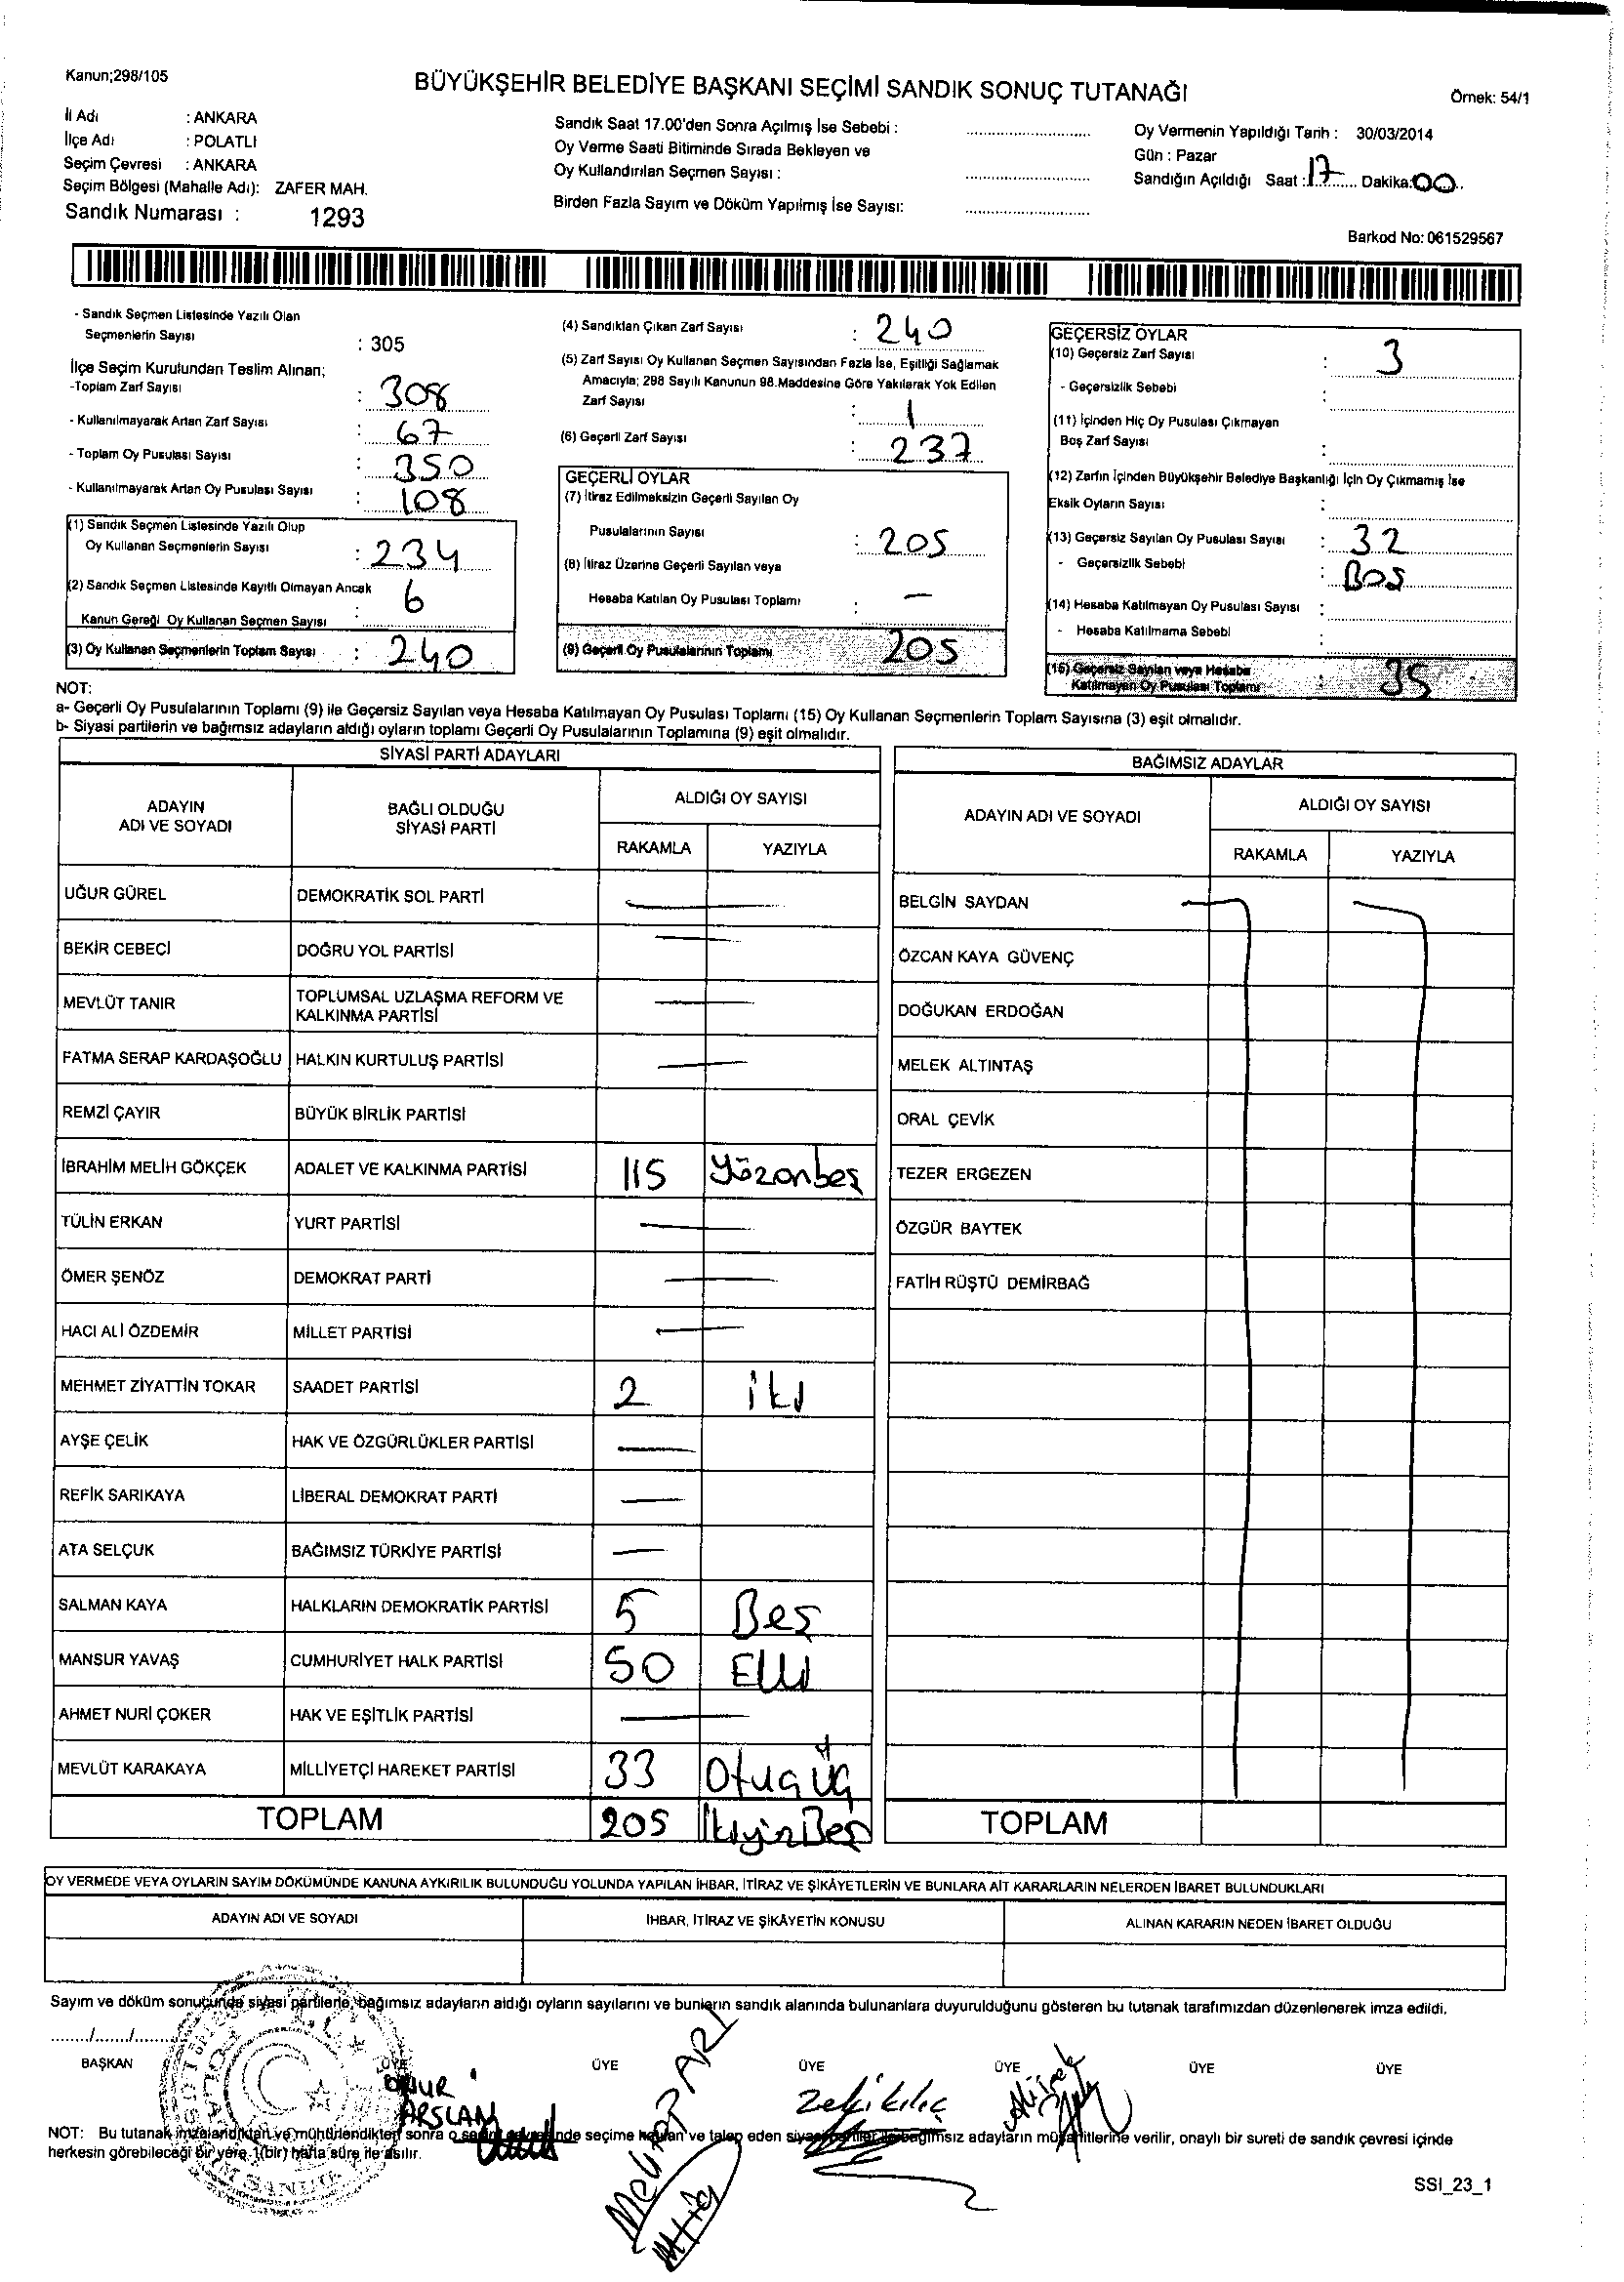 Kanun;298/105
BÜYÜKŞEHİR BELEDİYE BAŞKANI SEÇİMİ SANDIK SONUÇ TUTANAĞI
Örnek: 54/1
İl Adı : ANKARA
İlçe Adı : POLATLI
Seçim Çevresi : ANKARA
Seçim Bölgesi (Mahalle Adı): ZAFER MAH.
Sandık Numarası : 1293
Sandık Saat 17.00'den Sonra Açılmış İse Sebebi :
Oy Verme Saati Bitiminde Sırada Bekleyen ve
Oy Kullandırılan Seçmen Sayısı :
Birden Fazla Sayım ve Döküm Yapılmış İse Sayısı:
Oy Vermenin Yapıldığı Tarih : 30/03/2014
Gün : Pazar
Sandığın Açıldığı Saat : 17 Dakika: 00
Barkod No: 061529567
- Sandık Seçmen Listesinde Yazılı Olan
Seçmenlerin Sayısı : 305
İlçe Seçim Kurulundan Teslim Alınan;
-Toplam Zarf Sayısı : 308
- Kullanılmayarak Artan Zarf Sayısı : 67
- Toplam Oy Pusulası Sayısı : 350
- Kullanılmayarak Artan Oy Pusulası Sayısı : 108
(1) Sandık Seçmen Listesinde Yazılı Olup
Oy Kullanan Seçmenlerin Sayısı : 234
(2) Sandık Seçmen Listesinde Kayıtlı Olmayan Ancak
Kanun Gereği Oy Kullanan Seçmen Sayısı : 6
(3) Oy Kullanan Seçmenlerin Toplam Sayısı : 240
(4) Sandıktan Çıkan Zarf Sayısı : 240
(5) Zarf Sayısı Oy Kullanan Seçmen Sayısından Fazla İse, Eşitliği Sağlamak
Amacıyla; 298 Sayılı Kanunun 98.Maddesine Göre Yakılarak Yok Edilen
Zarf Sayısı : 1
(6) Geçerli Zarf Sayısı : 237
GEÇERLİ OYLAR
(7) İtiraz Edilmeksizin Geçerli Sayılan Oy
Pusulalarının Sayısı : 205
(8) İtiraz Üzerine Geçerli Sayılan veya
Hesaba Katılan Oy Pusulası Toplamı : -
(9) Geçerli Oy Pusulalarının Toplamı 205
GEÇERSİZ OYLAR
(10) Geçersiz Zarf Sayısı : 3
- Geçersizlik Sebebi :
(11) İçinden Hiç Oy Pusulası Çıkmayan
Boş Zarf Sayısı :
(12) Zarfın İçinden Büyükşehir Belediye Başkanlığı İçin Oy Çıkmamış İse
Eksik Oyların Sayısı :
(13) Geçersiz Sayılan Oy Pusulası Sayısı : 32
- Geçersizlik Sebebi : BOŞ
(14) Hesaba Katılmayan Oy Pusulası Sayısı :
- Hesaba Katılmama Sebebi :
(15) Geçersiz Sayılan veya Hesaba
Katılmayan Oy Pusulası Toplamı : 35
NOT:
a- Geçerli Oy Pusulalarının Toplamı (9) ile Geçersiz Sayılan veya Hesaba Katılmayan Oy Pusulası Toplamı (15) Oy Kullanan Seçmenlerin Toplam Sayısına (3) eşit olmalıdır.
b- Siyasi partilerin ve bağımsız adayların aldığı oyların toplamı Geçerli Oy Pusulalarının Toplamına (9) eşit olmalıdır.
SİYASİ PARTİ ADAYLARI
ADAYIN ADI VE SOYADI
BAĞLI OLDUĞU SİYASİ PARTİ
ALDIĞI OY SAYISI
RAKAMLA YAZIYLA
UĞUR GÜREL DEMOKRATİK SOL PARTİ
BEKİR CEBECİ DOĞRU YOL PARTİSİ
MEVLÜT TANIR TOPLUMSAL UZLAŞMA REFORM VE
KALKINMA PARTİSİ
FATMA SERAP KARDAŞOĞLU HALKIN KURTULUŞ PARTİSİ
REMZİ ÇAYIR BÜYÜK BİRLİK PARTİSİ
İBRAHİM MELİH GÖKÇEK ADALET VE KALKINMA PARTİSİ 115 Yözonbeş
TÜLİN ERKAN YURT PARTİSİ
ÖMER ŞENÖZ DEMOKRAT PARTİ
HACI ALİ ÖZDEMİR MİLLET PARTİSİ
MEHMET ZİYATTİN TOKAR SAADET PARTİSİ 2 iki
AYŞE ÇELİK HAK VE ÖZGÜRLÜKLER PARTİSİ
REFİK SARIKAYA LİBERAL DEMOKRAT PARTİ
ATA SELÇUK BAĞIMSIZ TÜRKİYE PARTİSİ
SALMAN KAYA HALKLARIN DEMOKRATİK PARTİSİ 5 Beş
MANSUR YAVAŞ CUMHURİYET HALK PARTİSİ 50 Elli
AHMET NURİ ÇOKER HAK VE EŞİTLİK PARTİSİ
MEVLÜT KARAKAYA MİLLİYETÇİ HAREKET PARTİSİ 33 Otug üç
TOPLAM 205 İkiyüzBeş
BAĞIMSIZ ADAYLAR
ADAYIN ADI VE SOYADI
ALDIĞI OY SAYISI
RAKAMLA YAZIYLA
BELGİN SAYDAN
ÖZCAN KAYA GÜVENÇ
DOĞUKAN ERDOĞAN
MELEK ALTINTAŞ
ORAL ÇEVİK
TEZER ERGEZEN
ÖZGÜR BAYTEK
FATİH RÜŞTÜ DEMİRBAĞ
TOPLAM
OY VERMEDE VEYA OYLARIN SAYIM DÖKÜMÜNDE KANUNA AYKIRILIK BULUNDUĞU YOLUNDA YAPILAN İHBAR, İTİRAZ VE ŞİKÂYETLERİN VE BUNLARA AİT KARARLARIN NELERDEN İBARET BULUNDUKLARI
ADAYIN ADI VE SOYADI
İHBAR, İTİRAZ VE ŞİKÂYETİN KONUSU
ALINAN KARARIN NEDEN İBARET OLDUĞU
Sayım ve döküm sonucunda siyasi partilerle, bağımsız adayların aldığı oyların sayılarını ve bunların sandık alanında bulunanlara duyurulduğunu gösteren bu tutanak tarafımızdan düzenlenerek imza edildi.
....../....../......
BAŞKAN ÜYE ÜYE ÜYE ÜYE ÜYE ÜYE
ONUR ARSLAN
Zeki Kılıç
NOT: Bu tutanak imzalandıktan ve mühürlendikten sonra o seçim çevresinde seçime katılan ve talep eden siyasi partiler ile bağımsız adayların müşahitlerine verilir, onaylı bir sureti de sandık çevresi içinde
herkesin görebileceği bir yere 1(bir) hafta süre ile asılır.
SSI_23_1